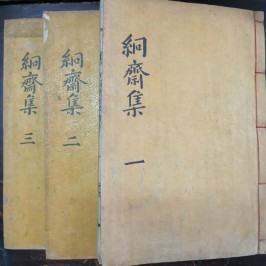 絅齋集 一
絅齋集 二
絅齋集 三